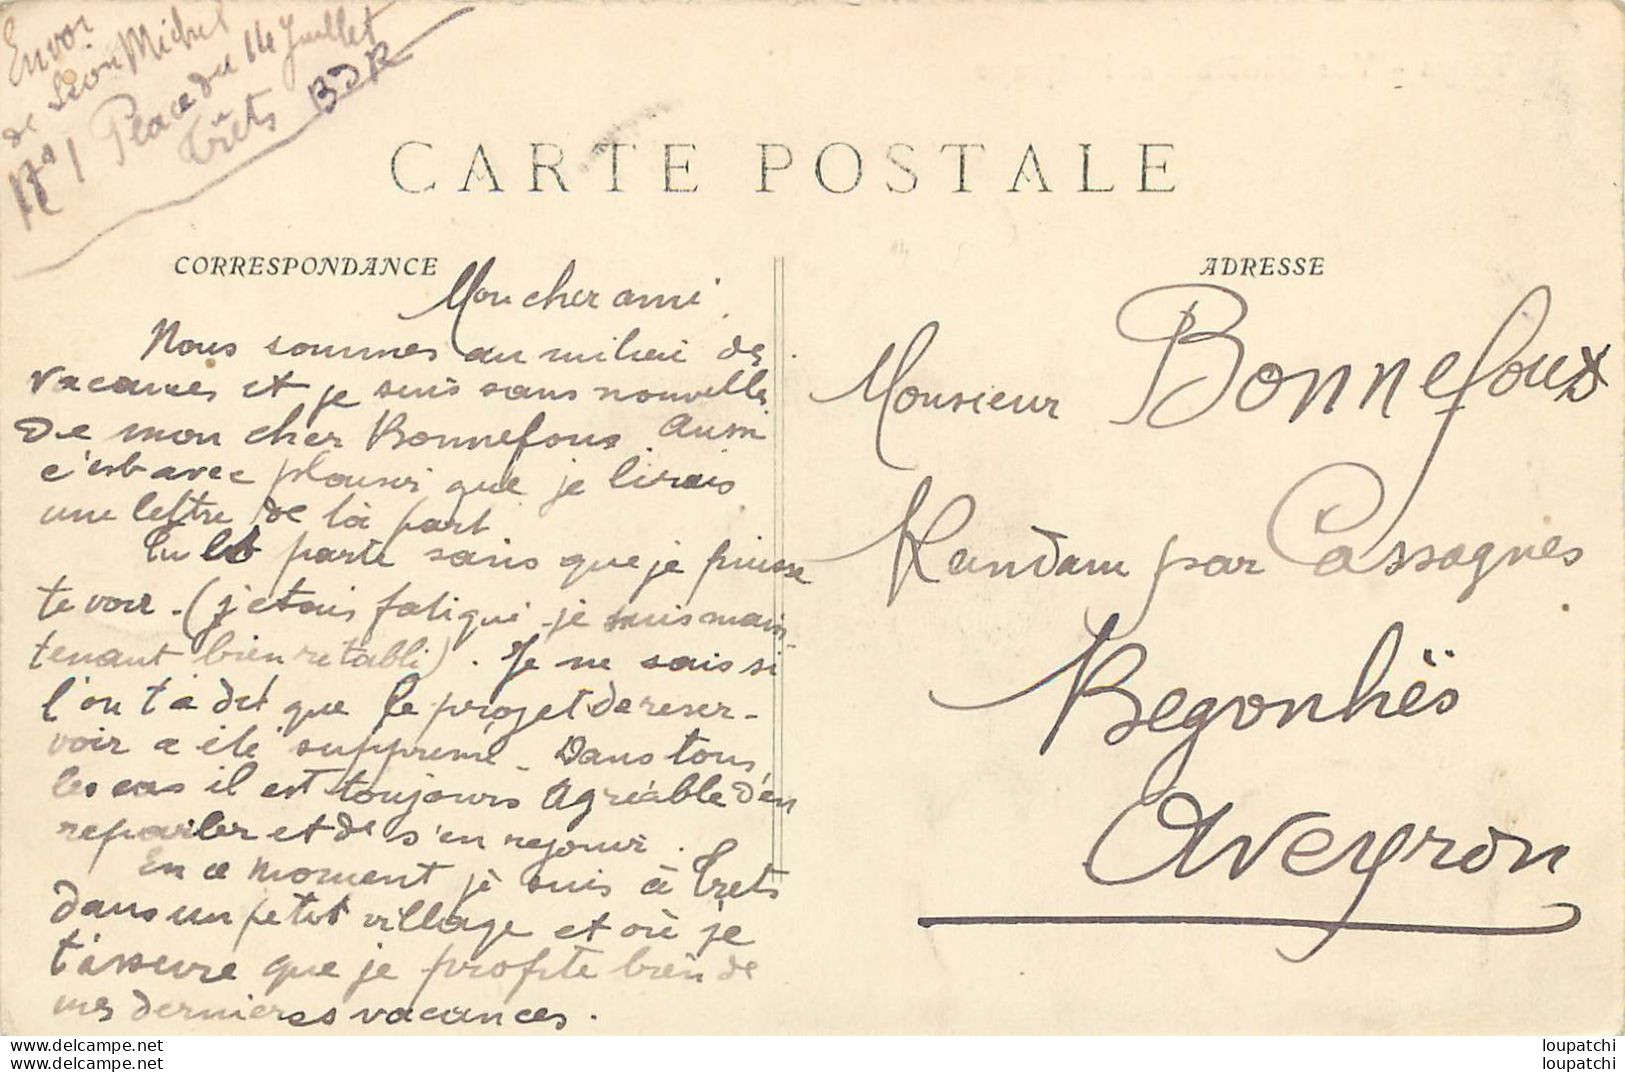 Envoi
de Léon Michel
N° 1 Place du 14 Juillet
Trêts BDR
CARTE POSTALE
CORRESPONDANCE
ADRESSE
Mon cher ami
Nous sommes au milieu de
vacances et je suis sans nouvelle
De mon cher Bonnefous Aussi
c'est avec plaisir que je lirais
une lettre de ta part
Tu es parti sans que je puisse
te voir - (j'etais fatigué - je suis main-
tenant bien retabli). Je ne sais si
l'on t'a dit que le projet de reser-
voir a été supprimé - Dans tous
les cas il est toujours Agréable d'en
reparler et de s'en rejouir.
En ce moment je suis à Trets
dans un petit village et où je
t'assure que je profite bien de
mes dernieres vacances.
Monsieur Bonnefous
Randam par Cassagnes
Begonhès
Aveyron
loupatchi
loupatchi